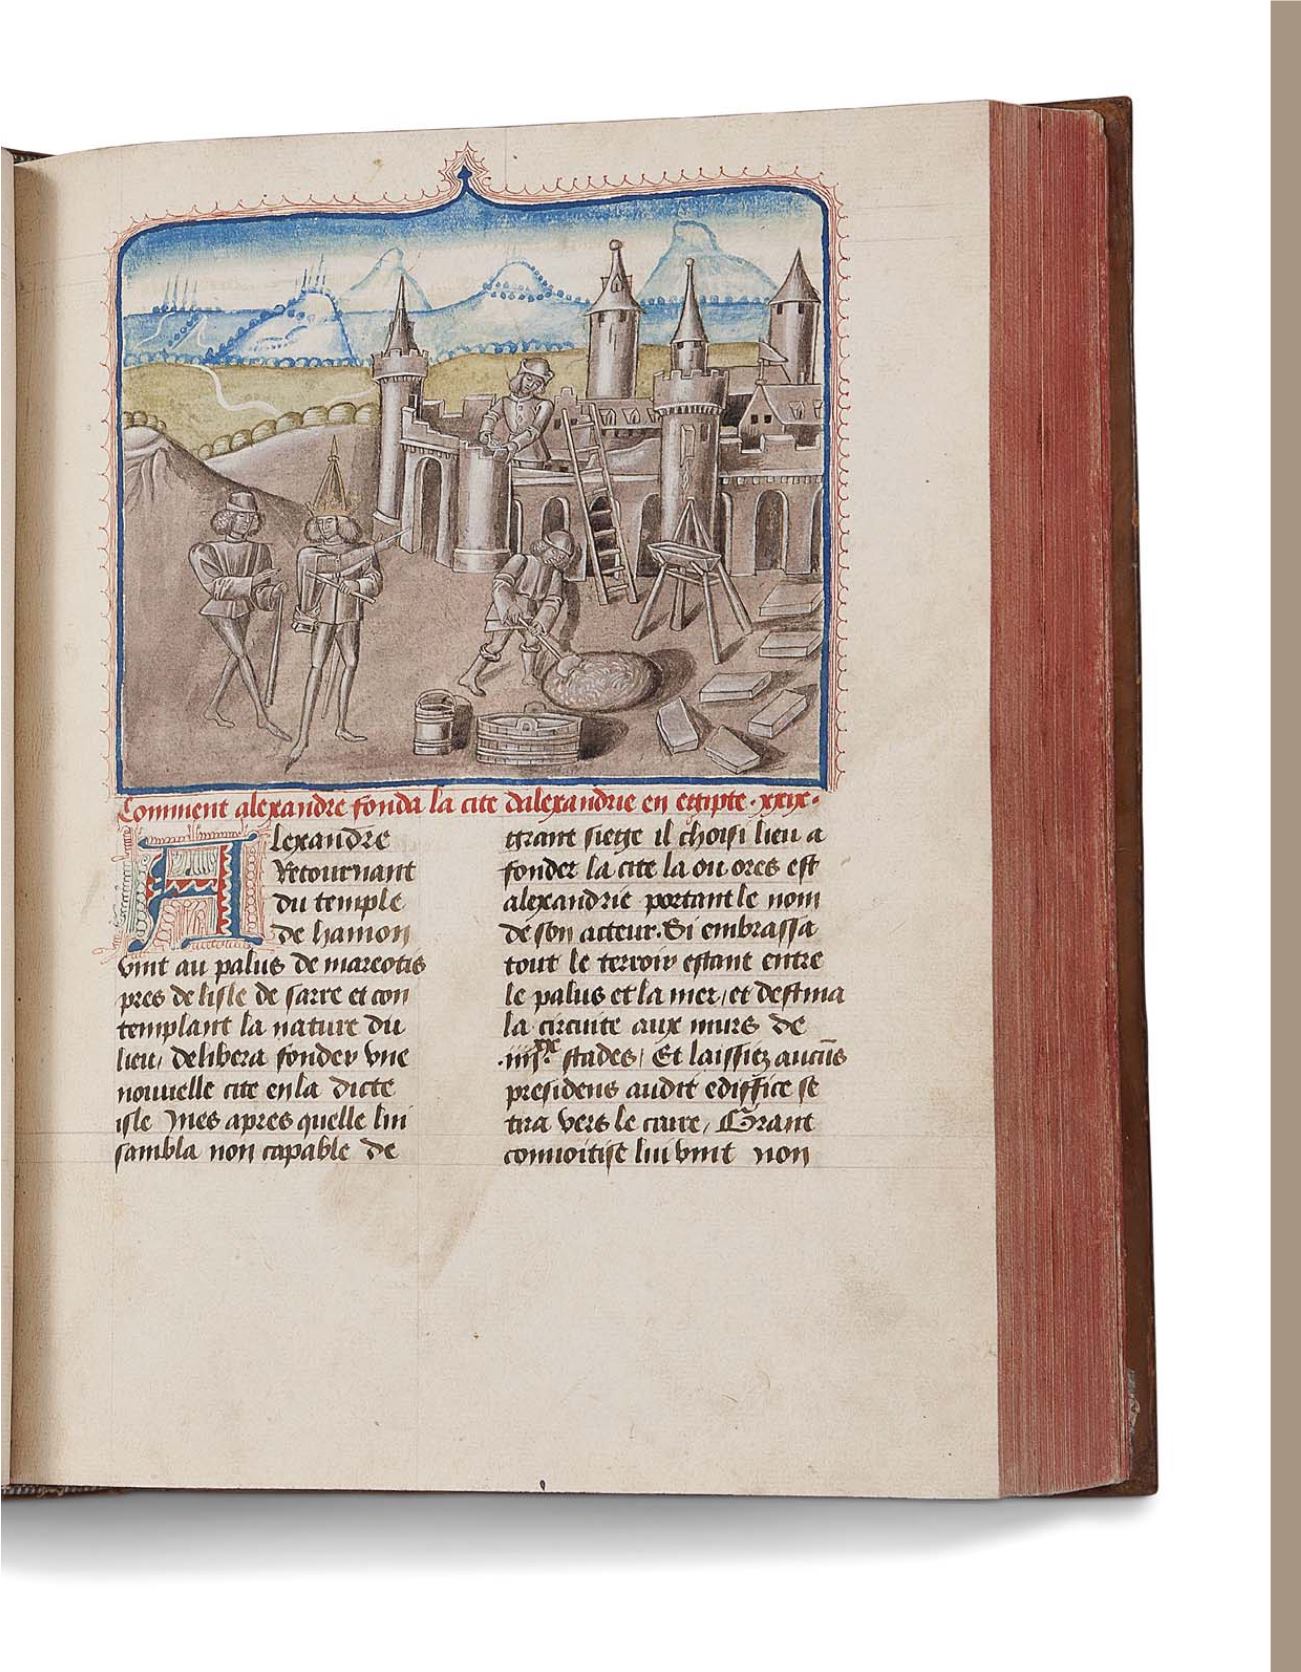 Comment alexandre fonda la cite dalexandrie en egipte .xxix.
Alexandre
Retournant
du temple
de hamon
vint au palus de mareotis
pres de lisle de farre et con
templant la nature du
lieu, delibera fonder vne
nouuelle cite en la dicte
isle Mes apres quelle lui
sambla non capable de
grant siege il choisi lieu a
fonder la cite la ou ores est
alexandrie portant le nom
de son acteur. Si embrassa
tout le terroir estant entre
le palus et la mer, et destina
la circuite aux murs de
.iiii^xx. stades, Et laissiez aucūs
presidens audit ediffice se
tira vers le caire, Grant
conuoitise lui vint non